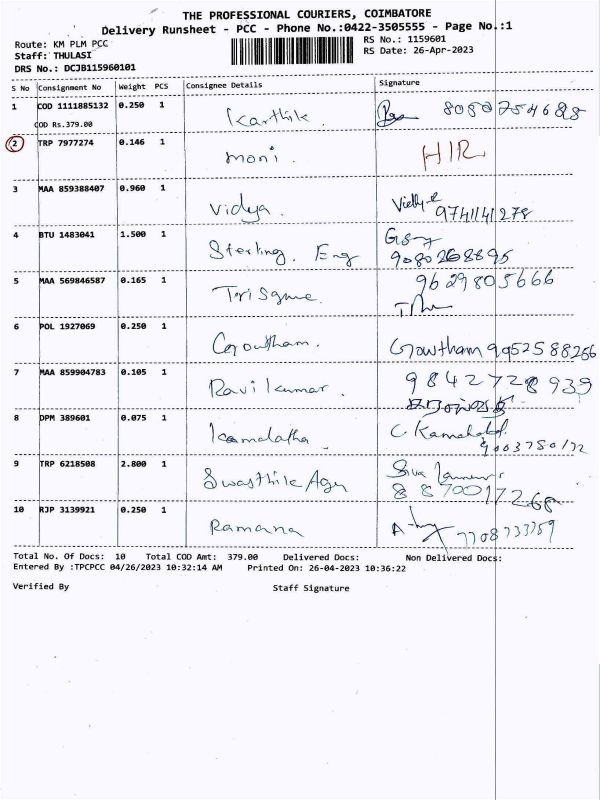 THE PROFESSIONAL COURIERS, COIMBATORE
Delivery Runsheet - PCC - Phone No.:0422-3505555 - Page No.:1
Route: KM PLM PCC
RS No.: 1159601
Staff: THULASI
RS Date: 26-Apr-2023
DRS No.: DCJB115960101
S No Consignment No Weight PCS Consignee Details Signature
1 COD 1111885132 0.250 1 Karthik.
COD Rs.379.00
2 TRP 7977274 0.146 1 moni. HIR
3 MAA 859388407 0.960 1 vidya. 9741141278
4 BTU 1483041 1.500 1 Sterling. Eng 9080268895
5 MAA 569846587 0.165 1 9629805666
6 POL 1927069 0.250 1 Gowtham. Gowtham 9952588266
7 MAA 859904783 0.105 1 Ravikumar. 9842728939
8 DPM 389601 0.075 1 Kamalatha C. Kamalatha
9 TRP 6218508 2.800 1 Swasthik 8870017268
10 RJP 3139921 0.250 1 Ramana 7708733759
Total No. Of Docs: 10 Total COD Amt: 379.00 Delivered Docs: Non Delivered Docs:
Entered By :TPCPCC 04/26/2023 10:32:14 AM Printed On: 26-04-2023 10:36:22
Verified By Staff Signature